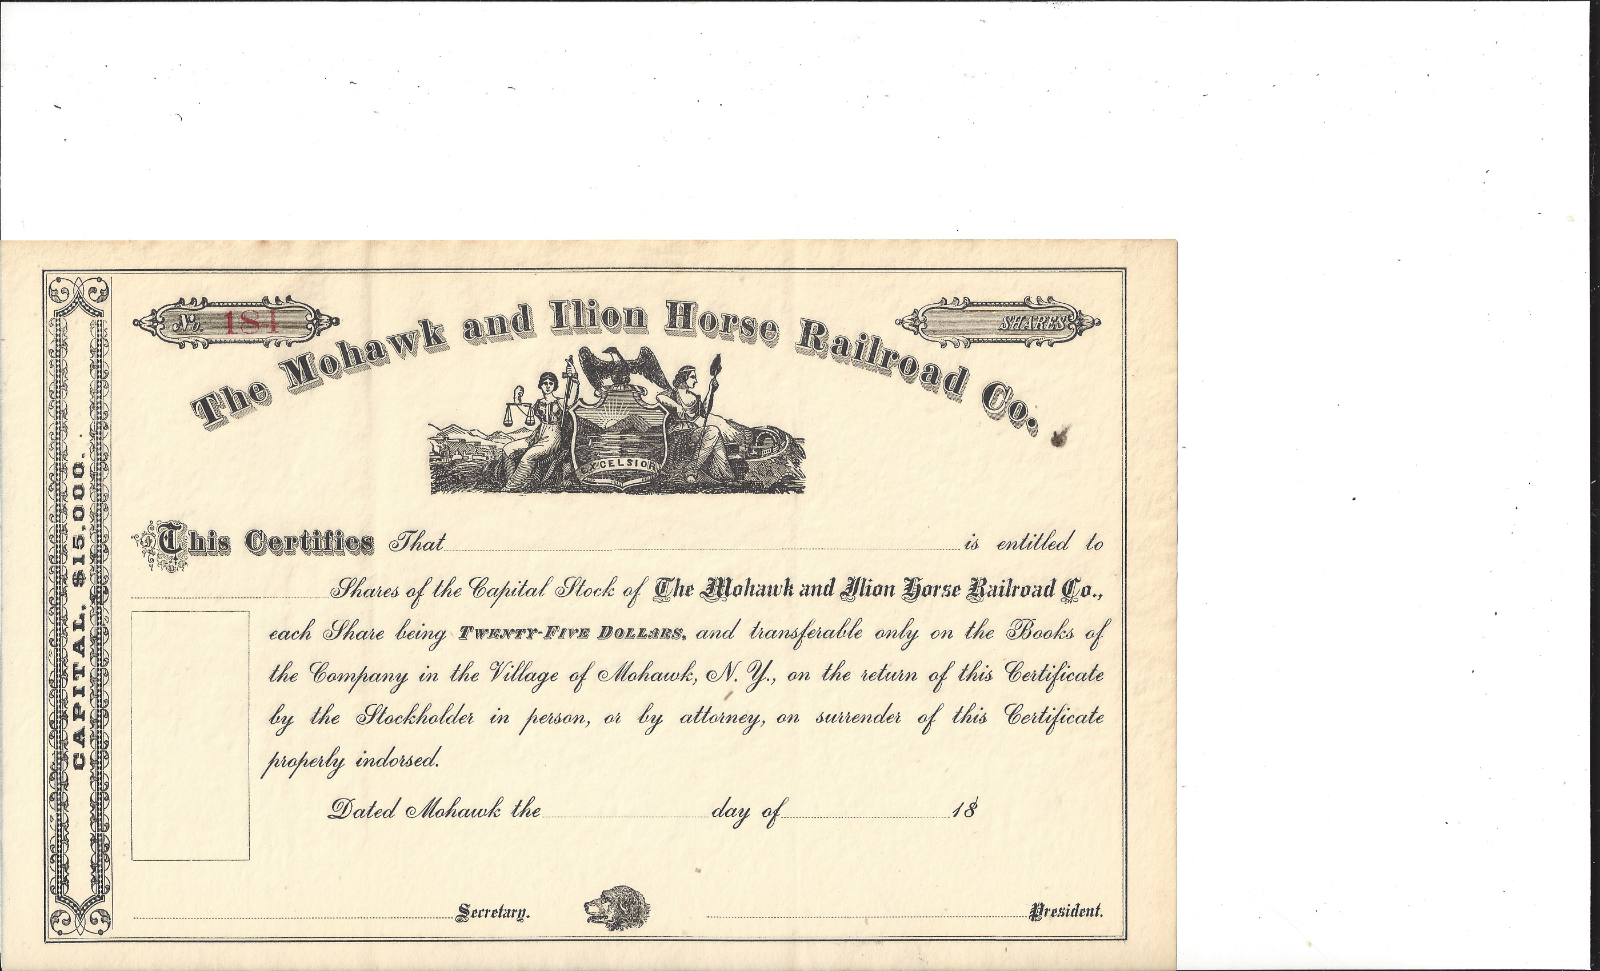 No. 184
SHARES
The Mohawk and Ilion Horse Railroad Co.
EXCELSIOR
CAPITAL, $15,000.
This Certifies That is entitled to
Shares of the Capital Stock of The Mohawk and Ilion Horse Railroad Co.,
each Share being TWENTY-FIVE DOLLARS, and transferable only on the Books of
the Company in the Village of Mohawk, N. Y., on the return of this Certificate
by the Stockholder in person, or by attorney, on surrender of this Certificate
properly indorsed.
Dated Mohawk the day of 18
Secretary. President.